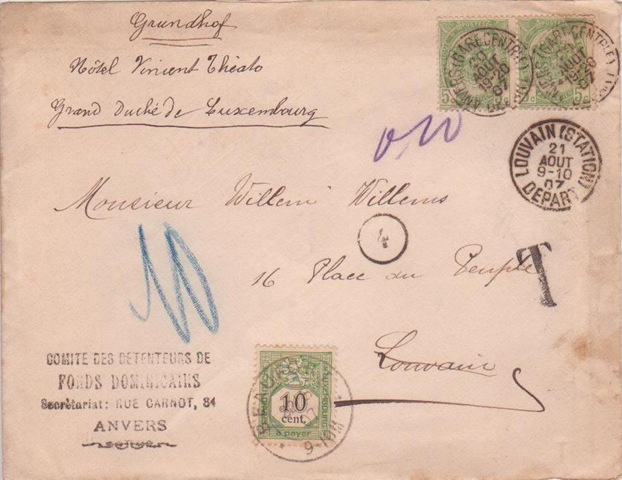 Grundhof
Hôtel Vinient Théato
Grand Duché de Luxembourg
ANVERS (GARE CENTRALE)
20
AOUT
19-20
07
ANVERS (GARE CENTRALE)
AOUT
19-20
07
0,10
LOUVAIN (STATION)
21
AOUT
9-10
07
DEPART
Monsieur Willem Willems
4
16 Place du Peuple
T
Louvain
10
COMITE DES DETENTEURS DE
FONDS DOMINICAINS
Secrétariat: RUE CARNOT, 84
ANVERS
10
cent.
à payer